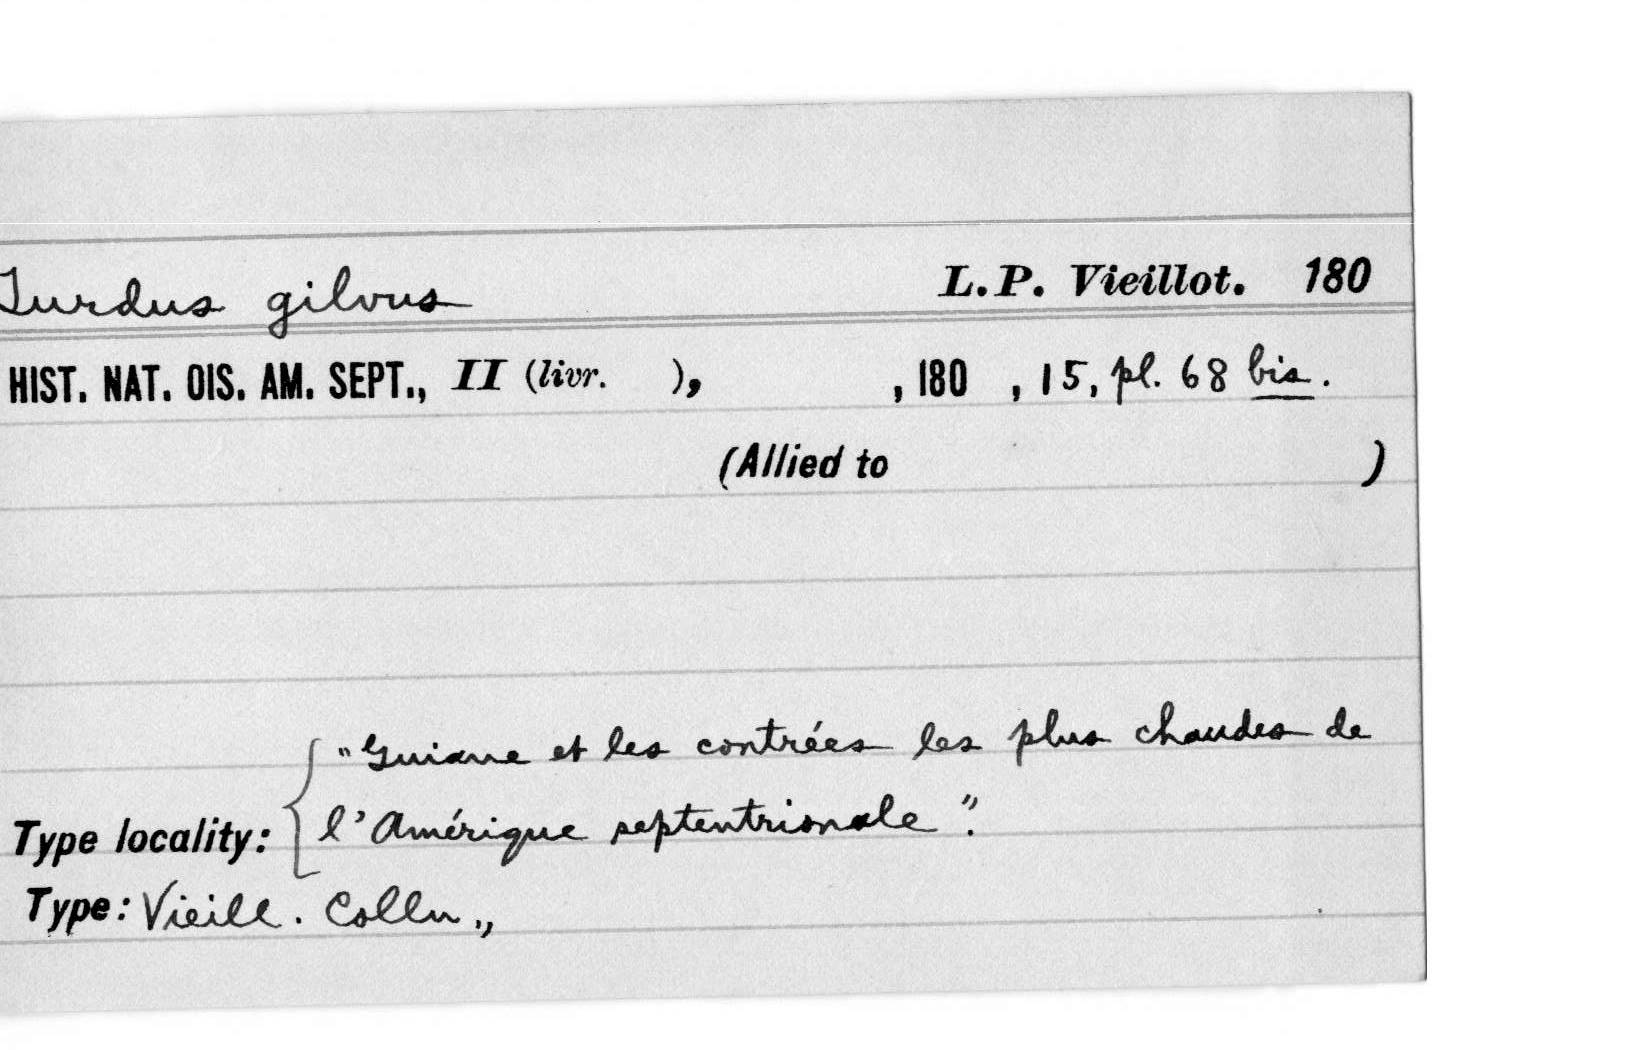 Turdus gilvus L.P. Vieillot. 180
HIST. NAT. OIS. AM. SEPT., II (livr. ), , 180 , 15, pl. 68 bis.
(Allied to )
"Guiane et les contrées les plus chaudes de
Type locality: l'Amérique septentrionale".
Type: Vieill. Colln.,